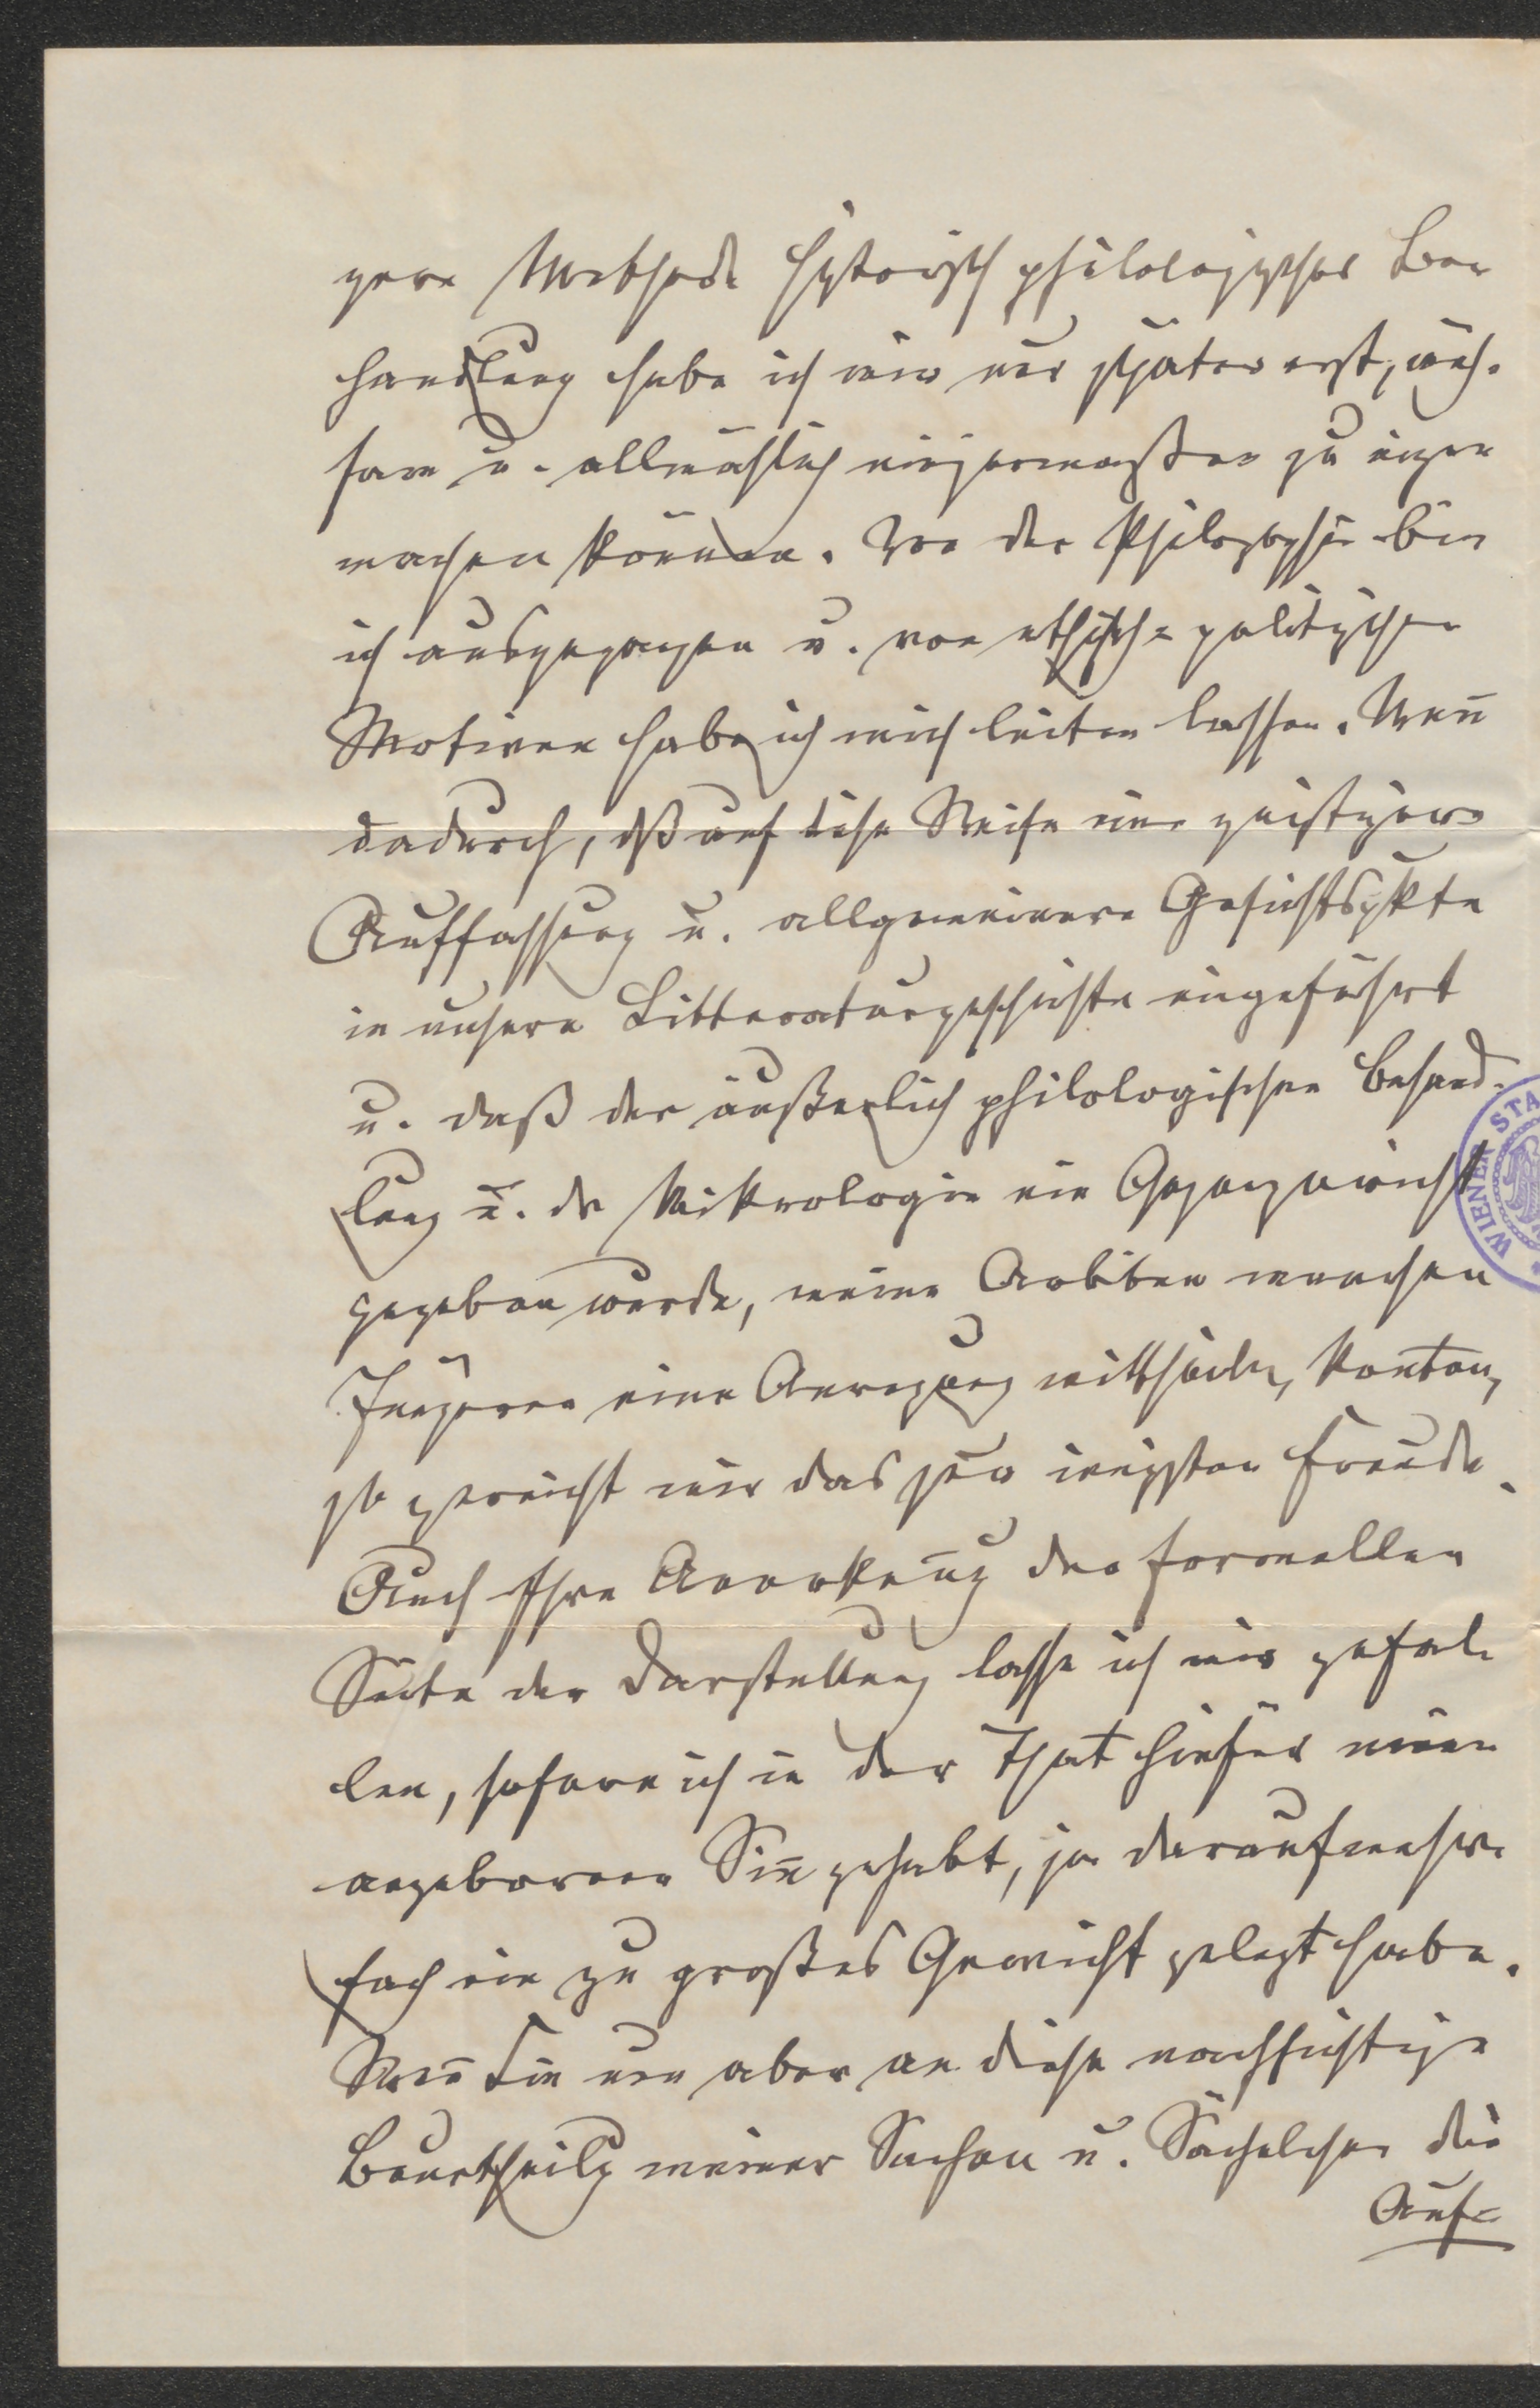 gere Methode historisch philologischer Be-
handlung habe ich mir nur später erst, müh-
sam u. allmählich einigermaßen zu eigen
machen können. Von der Philosophie bin
ich ausgegangen u. von ethisch=politischen
Motiven habe ich mich leiten lassen. Weñ
dadurch, dß auf diese Weise eine geistigere
Auffassung u. allgemeinere Gesichtspkte
in unsere Litteraturgeschichte eingeführt
u. daß der äußerlich philologischen Behand-
lung u. der Mikrologie ein Gegengewicht
gegeben wurde, meine Arbeiten manchen
Jüngeren eine Anregung mittheilen konnten,
so gereicht mir das zur innigsten Freude.
Auch Ihre Anerkeñung der formellen
Seite der Darstellung lasse ich mir gefal-
len, sofern ich in der That hiefür einen
angeborenen Siñ gehabt, ja darauf mehr-
fach ein zu großes Gewicht gelegt habe.
Weñ Sie nun aber an diese nachsichtige
Beurtheilg meiner Sachen u. Sächelchen die
Auf=
WIENER STA